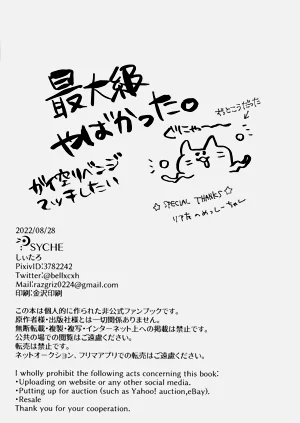 最大級
やばかった。
ガイ空リベンジ
マッチしたい
ずっとこうだった
ぐにゃ〜
☆SPECIAL THANKS☆
リア友のめっしーちゃん
2022/08/28
PSYCHE
しいたろ
PixivID:3782242
Twitter:@bellxcxh
Mail:razgriz0224@gmail.com
印刷:金沢印刷
この本は個人的に作られた非公式ファンブックです。
原作者様・出版社様とは一切関係ありません。
無断転載・複製・複写・インターネット上への掲載は禁止です。
公共の場での閲覧はご遠慮ください。
転売は禁止です。
ネットオークション、フリマアプリでの転売はご遠慮ください。
I wholly prohibit the following acts concerning this book:
・Uploading on website or any other social media.
・Putting up for auction (such as Yahoo! auction,eBay).
・Resale
Thank you for your cooperation.